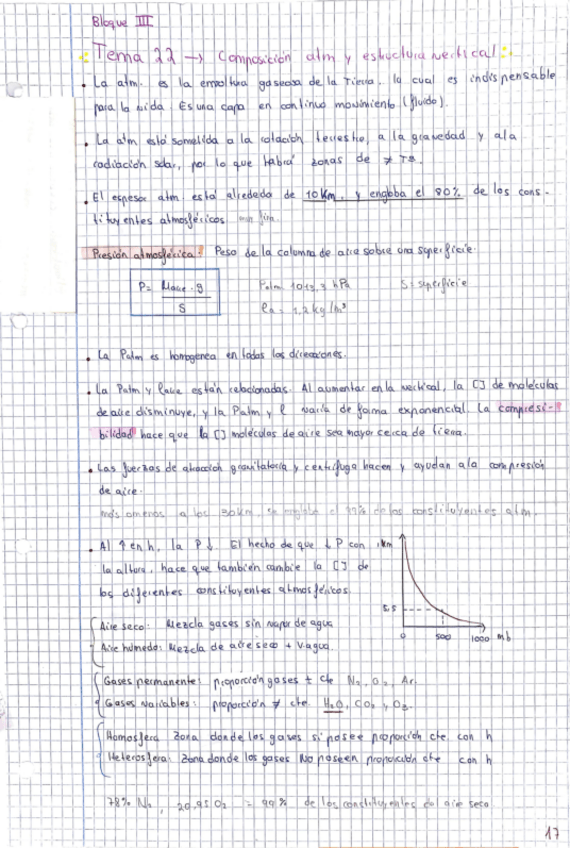 Bloque III
Tema 22 → Composición atm y estructura vertical:
• La atm. es la envoltura gaseosa de la Tierra. la cual es indispensable
para la vida. Es una capa en continuo movimiento (fluido).
• La atm está sometida a la rotación terrestre, a la gravedad y a la
radiación solar, por lo que habrá zonas de ≠ Tª.
• El espesor atm. está alrededo de 10Km. y engloba el 80% de los cons-
tituyentes atmosféricos
Presión atmosférica: Peso de la columna de aire sobre una superficie.
P = Maire · g / S
Patm 1013,3 hPa
S: superficie
ρa = 1,2 kg/m³
• La Patm es homogenea en todas las direcciones.
• La Patm y ρaire están relacionadas. Al aumentar en la vertical, la [] de moléculas
de aire disminuye, y la Patm y ρ varía de forma exponencial. La compresi-
bilidad hace que la [] moléculas de aire sea mayor cerca de tierra.
• Las fuerzas de atracción gravitatoria y centrífuga hacen y ayudan a la compresión
de aire.
más o menos a los 30km, se engloba el 99% de los constituyentes atm.
• Al ↑ en h, la P ↓. El hecho de que ↓ P con
la altura, hace que también cambie la [] de
los diferentes constituyentes atmosféricos.
km
5,5
0 500 1000 mb
Aire seco: Mezcla gases sin vapor de agua
Aire húmedo: Mezcla de aire seco + V.agua.
Gases permanente: proporción gases ± cte N₂, O₂, Ar.
Gases variables: proporción ≠ cte. H₂O, CO₂ y O₃.
Homosfera Zona donde los gases si posee proporción cte. con h
Heterosfera: Zona donde los gases No poseen proporción cte con h
78% N₂, 20,95 O₂ = 99% de los constituyentes del aire seco
17